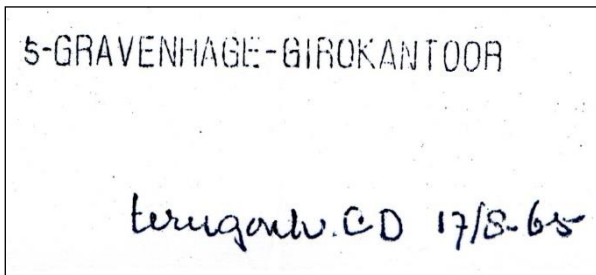 s-GRAVENHAGE-GIROKANTOOR
terugontv. CD 17/8-65